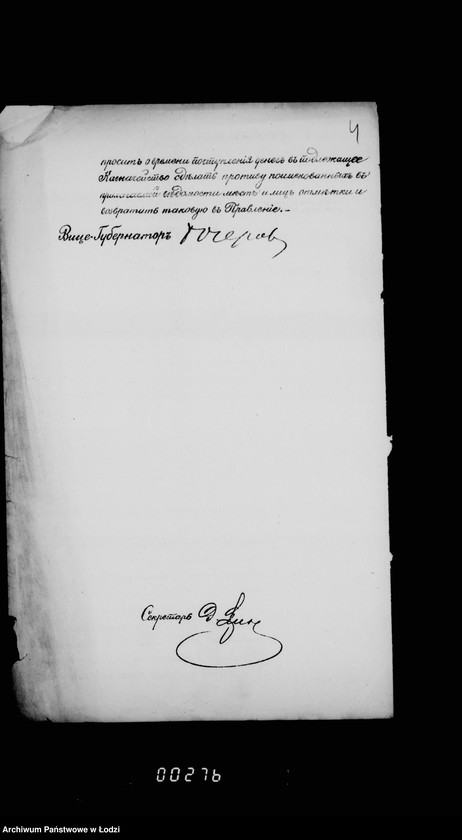 4
просить о времени поступленія денегъ въ подлежащее
Казначейство сдѣлать противу поименованныхъ въ
прилагаемой вѣдомости мѣстъ и лицъ отмѣтки и
возвратить таковую въ Правленіе. —
Вице-Губернаторъ
Секретарь
00276
Archiwum Państwowe w Łodzi